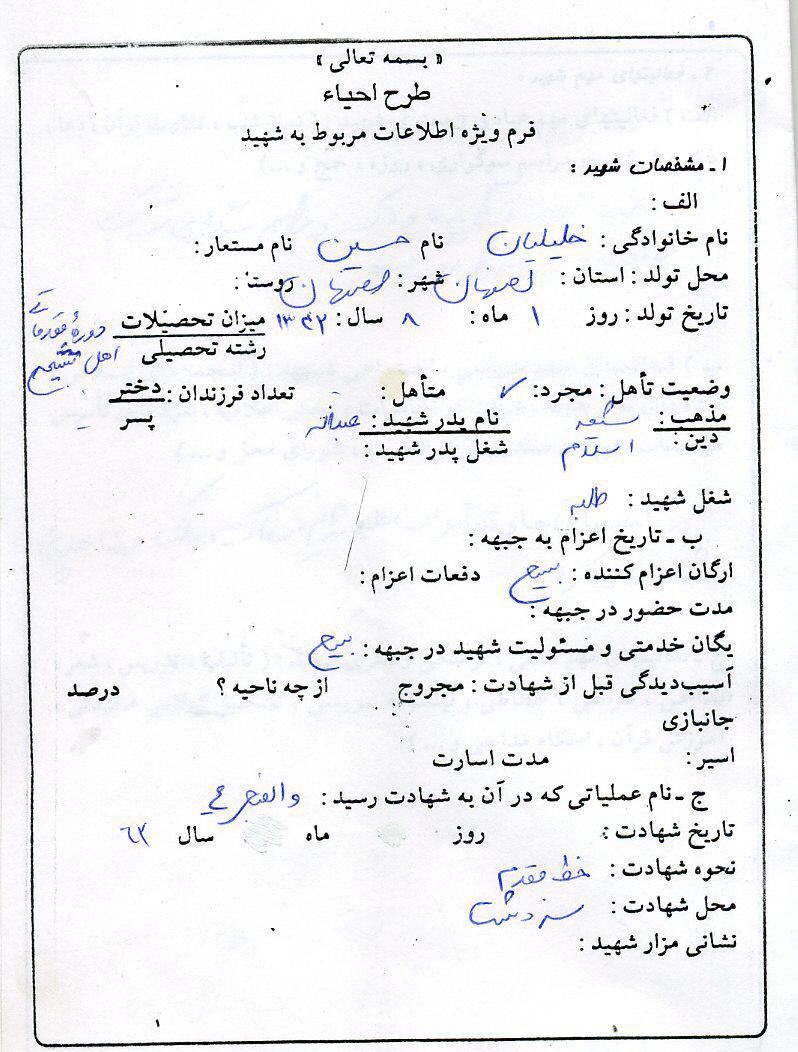 « بسمه تعالی »
طرح احیاء
فرم ویژه اطلاعات مربوط به شهید
۱ ـ مشخصات شهید :
الف :
نام خانوادگی : خلیلیان نام حسین نام مستعار :
محل تولد : استان : اصفهان شهر : اصفهان روستا :
تاریخ تولد : روز ۱ ماه : ۸ سال : ۱۳۴۲ میزان تحصیلات دورهٔ مقدماتی
رشته تحصیلی
وضعیت تأهل : مجرد : ✓ متأهل : تعداد فرزندان : دختر
پسر
مذهب : شیعه نام پدر شهید : عبداله
دین : اسلام شغل پدر شهید :
شغل شهید : طلبه
ب ـ تاریخ اعزام به جبهه :
ارگان اعزام کننده : بسیج دفعات اعزام :
مدت حضور در جبهه :
یگان خدمتی و مسئولیت شهید در جبهه : بسیج
آسیب‌دیدگی قبل از شهادت : مجروح از چه ناحیه ؟ درصد
جانبازی
اسیر : مدت اسارت
ج ـ نام عملیاتی که در آن به شهادت رسید : والفجر ۴
تاریخ شهادت : روز ماه سال ۶۳
نحوه شهادت : خط مقدم
محل شهادت : سردشت
نشانی مزار شهید :
۱